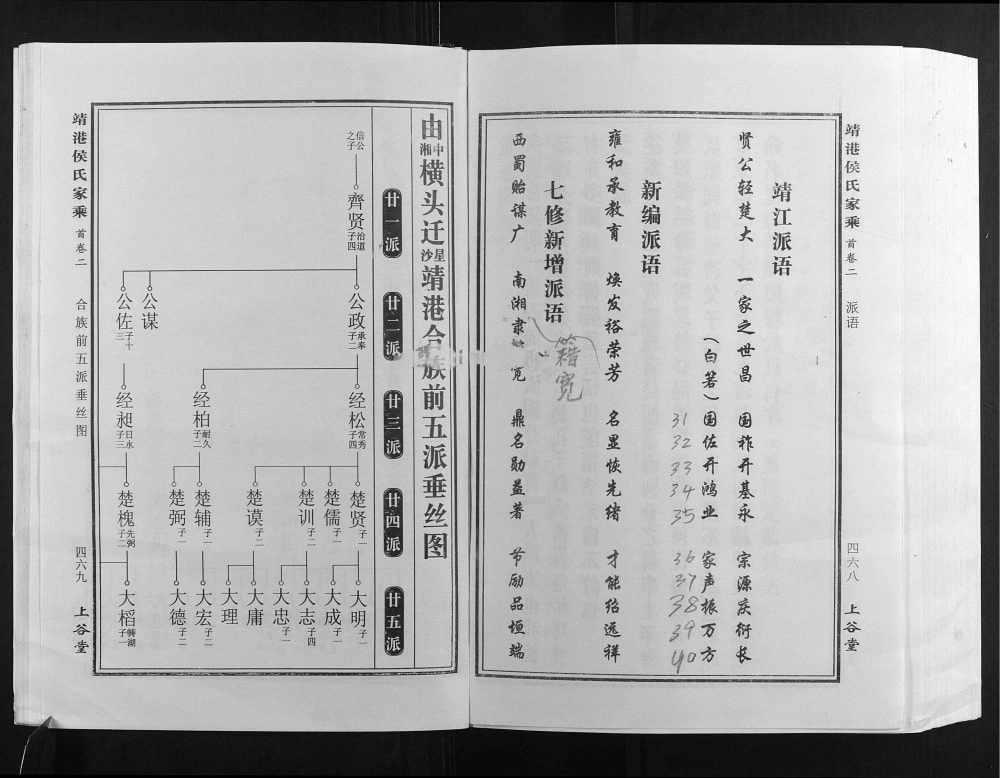 靖港侯氏家乘 首卷二 派语 四六八 上谷堂
靖江派语
贤公轻楚大 一家之世昌 国祚开基永 宗源庆衍长
(白箬) 国佐开鸿业 家声振万方
31 32 33 34 35 36 37 38 39 40
新编派语
雍和承教育 焕发裕荣芳 名显恢先绪 才能绍远祥
七修新增派语
籍宽
西蜀贻谋广 南湘隶 宽 鼎名勋益著 节励品垣端
由湘中横头迁星沙靖港合族前五派垂丝图
廿一派 廿二派 廿三派 廿四派 廿五派
信公之子
齐贤 治道 子四
公政 承奉 子二
公谋
公佐 子十三
经松 常秀 子四
经柏 耐久 子二
经昶 日永 子三
楚贤 子一
楚儒 子一
楚训 子二
楚谟 子二
楚辅 子一
楚弼 子二
楚槐 先弼 子二
大明 子一
大成 子一
大志 子四
大忠 子一
大庸
大理
大宏 子二
大德 子二
大稻 转湖 子一
靖港侯氏家乘 首卷二 合族前五派垂丝图 四六九 上谷堂